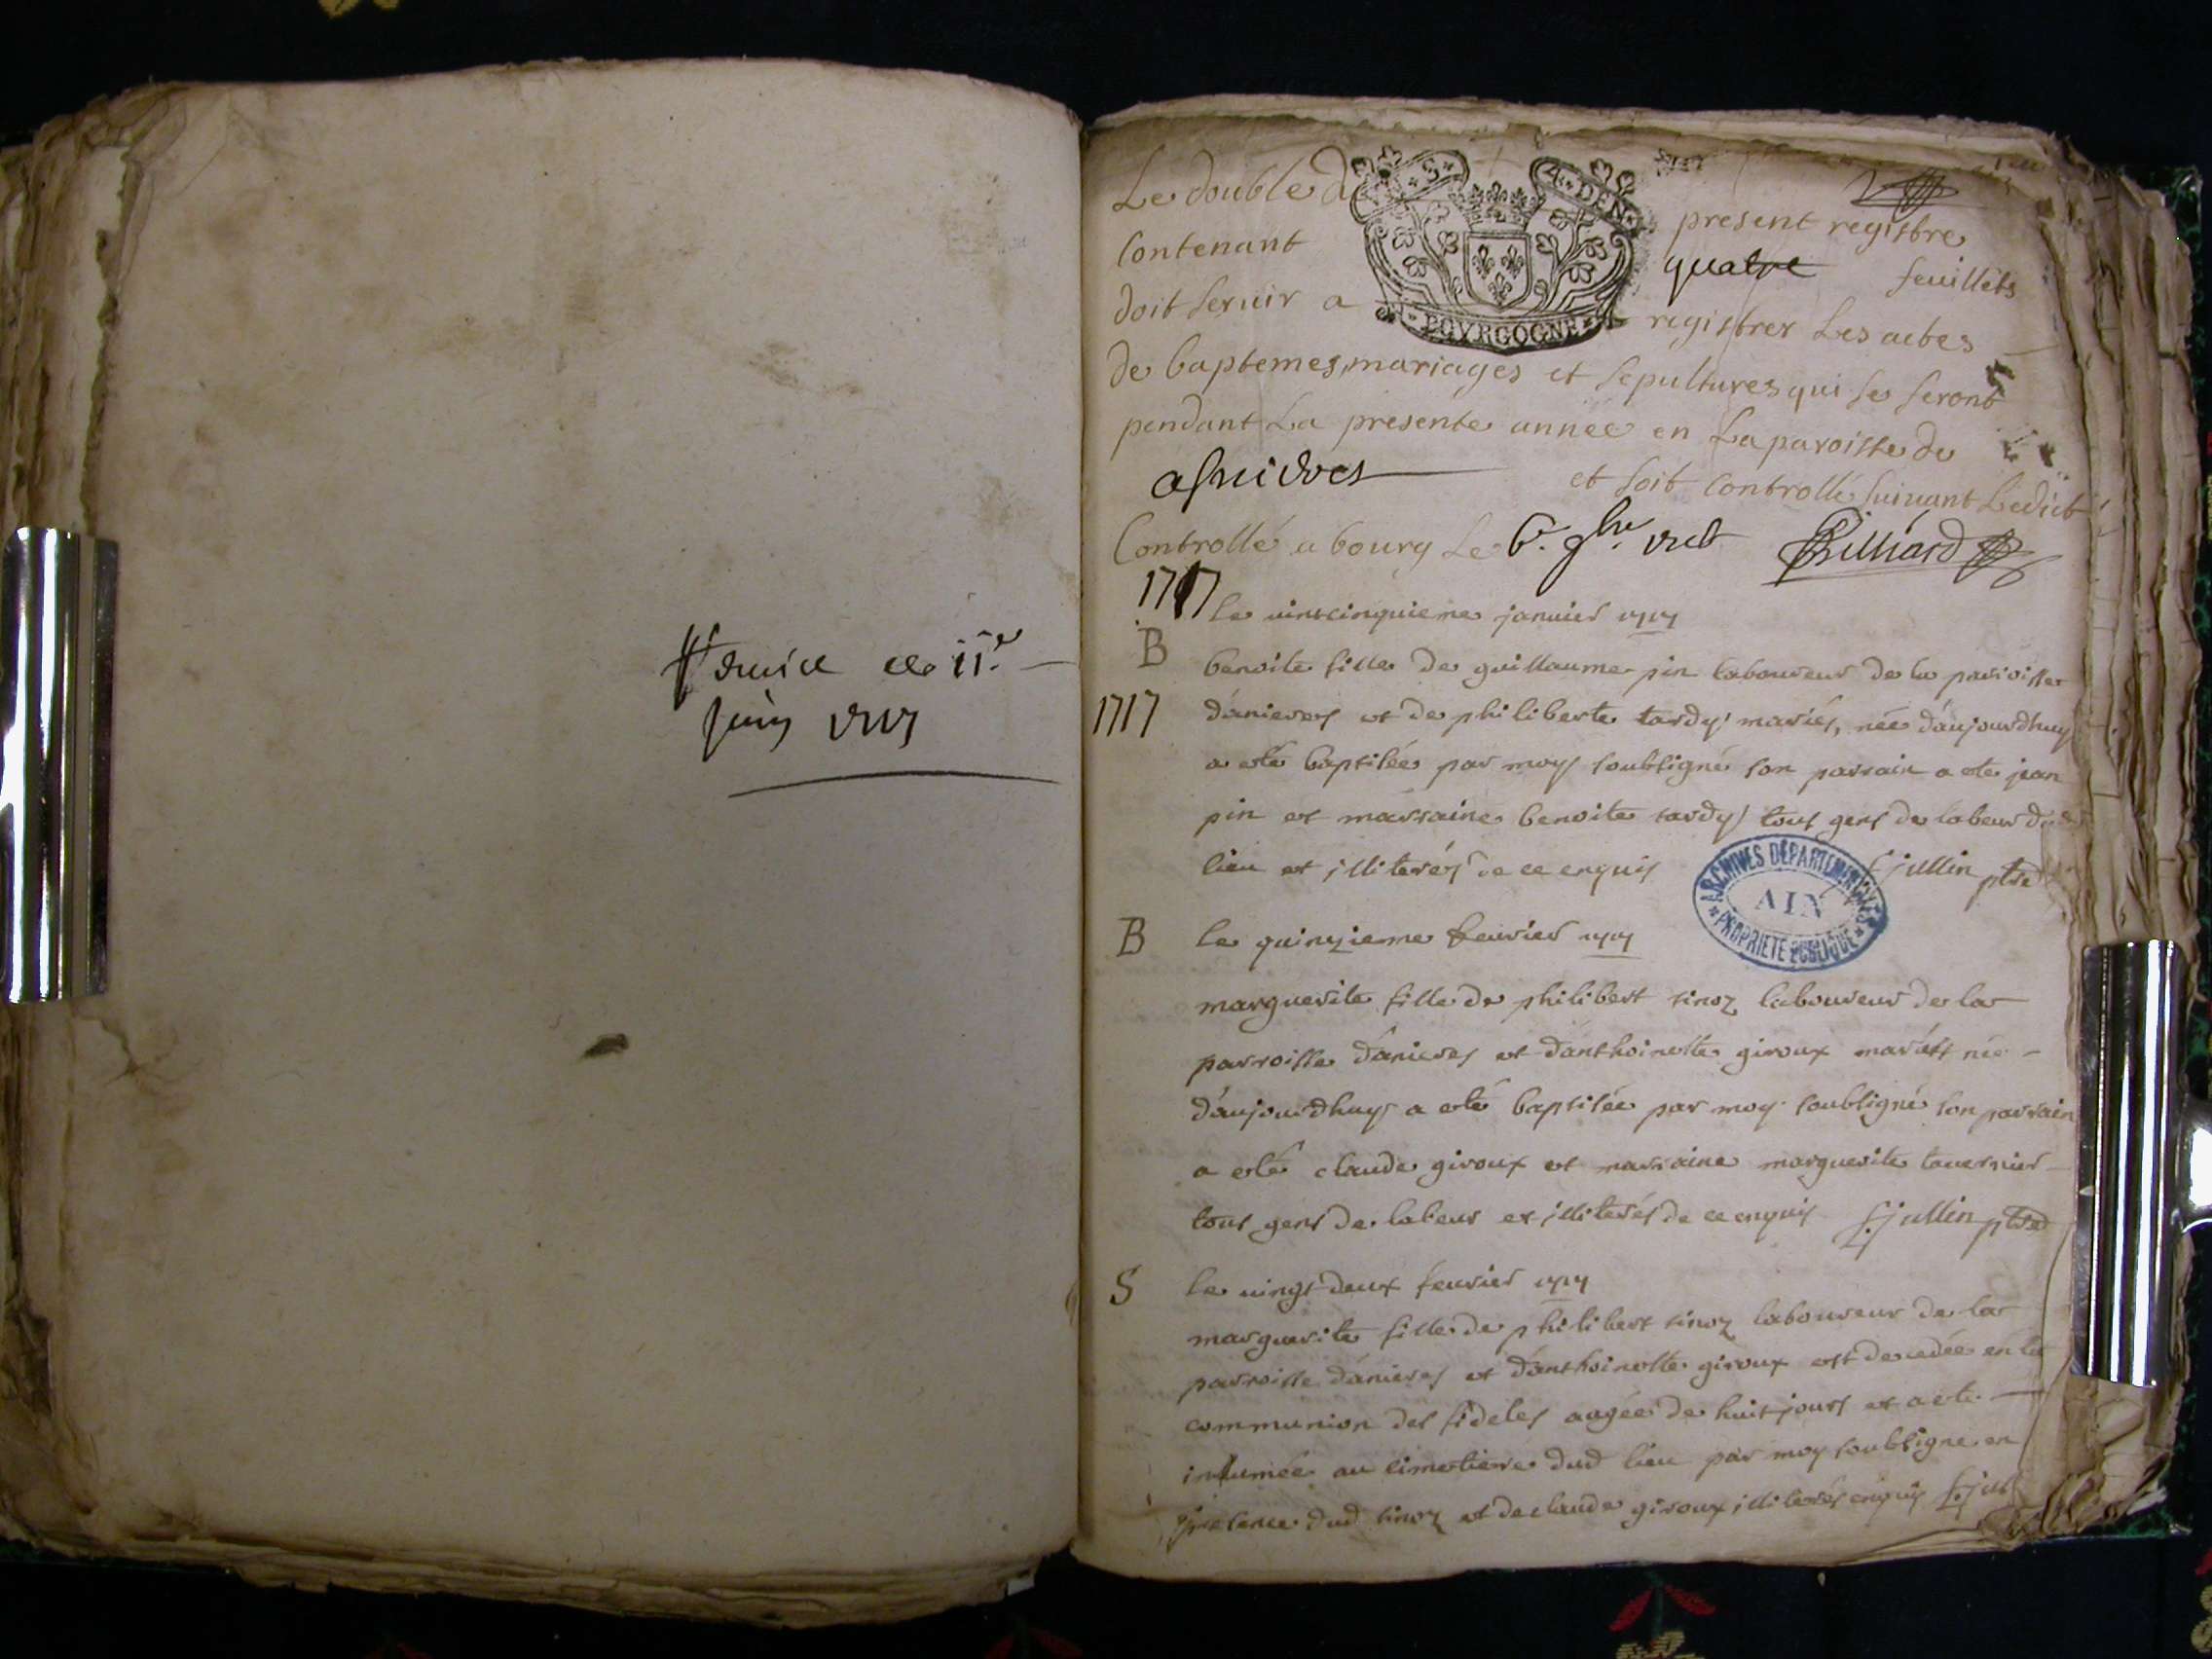 juin 1717
Le double du present registre
S 4 DEN
BOVRGOGNE
contenant quatre feuillets
doit seruir a registrer Les actes
de baptemes, mariages et sepultures qui se feront
pendant La presente année en La paroisse de
asnieres et soit controllé suiuant Ledict
Controllé a bourg Le 6. 9bre
1717
le vintcinquieme januier 1717
B
benoite fille de guillaume pin laboureur de la parroisse
1717
d'anieres et de philiberte tardy mariés, née d'aujourdhuy
a esté baptisée par moy soubsigné son parrain a esté jean
pin et marraine benoite tardy tous gens de labeur dud
lieu et illiterés de ce enquis f. jullin ptre
ARCHIVES DEPARTEMENTALES
AIN
PROPRIETE PUBLIQUE
B
le quinzieme feurier 1717
marguerite fille de philibert tinoz laboureur de la
parroisse d'anieres et d'anthoinette giroux mariés née
d'aujourdhuy a esté baptisée par moy soubsigné son parrain
a esté claude giroux et marraine marguerite tauernier
tous gens de labeur et illiterés de ce enquis f. jullin ptre
S
le vingt deux feurier 1717
marguerite fille de philibert tinoz laboureur de la
parroisse d'anieres et d'anthoinette giroux est decedée en la
communion des fideles aagée de huit jours et a esté
inhumée au cimetiere dud lieu par moy soubsigné en
presence dud tinoz et de claude giroux illiterés enquis f. jul